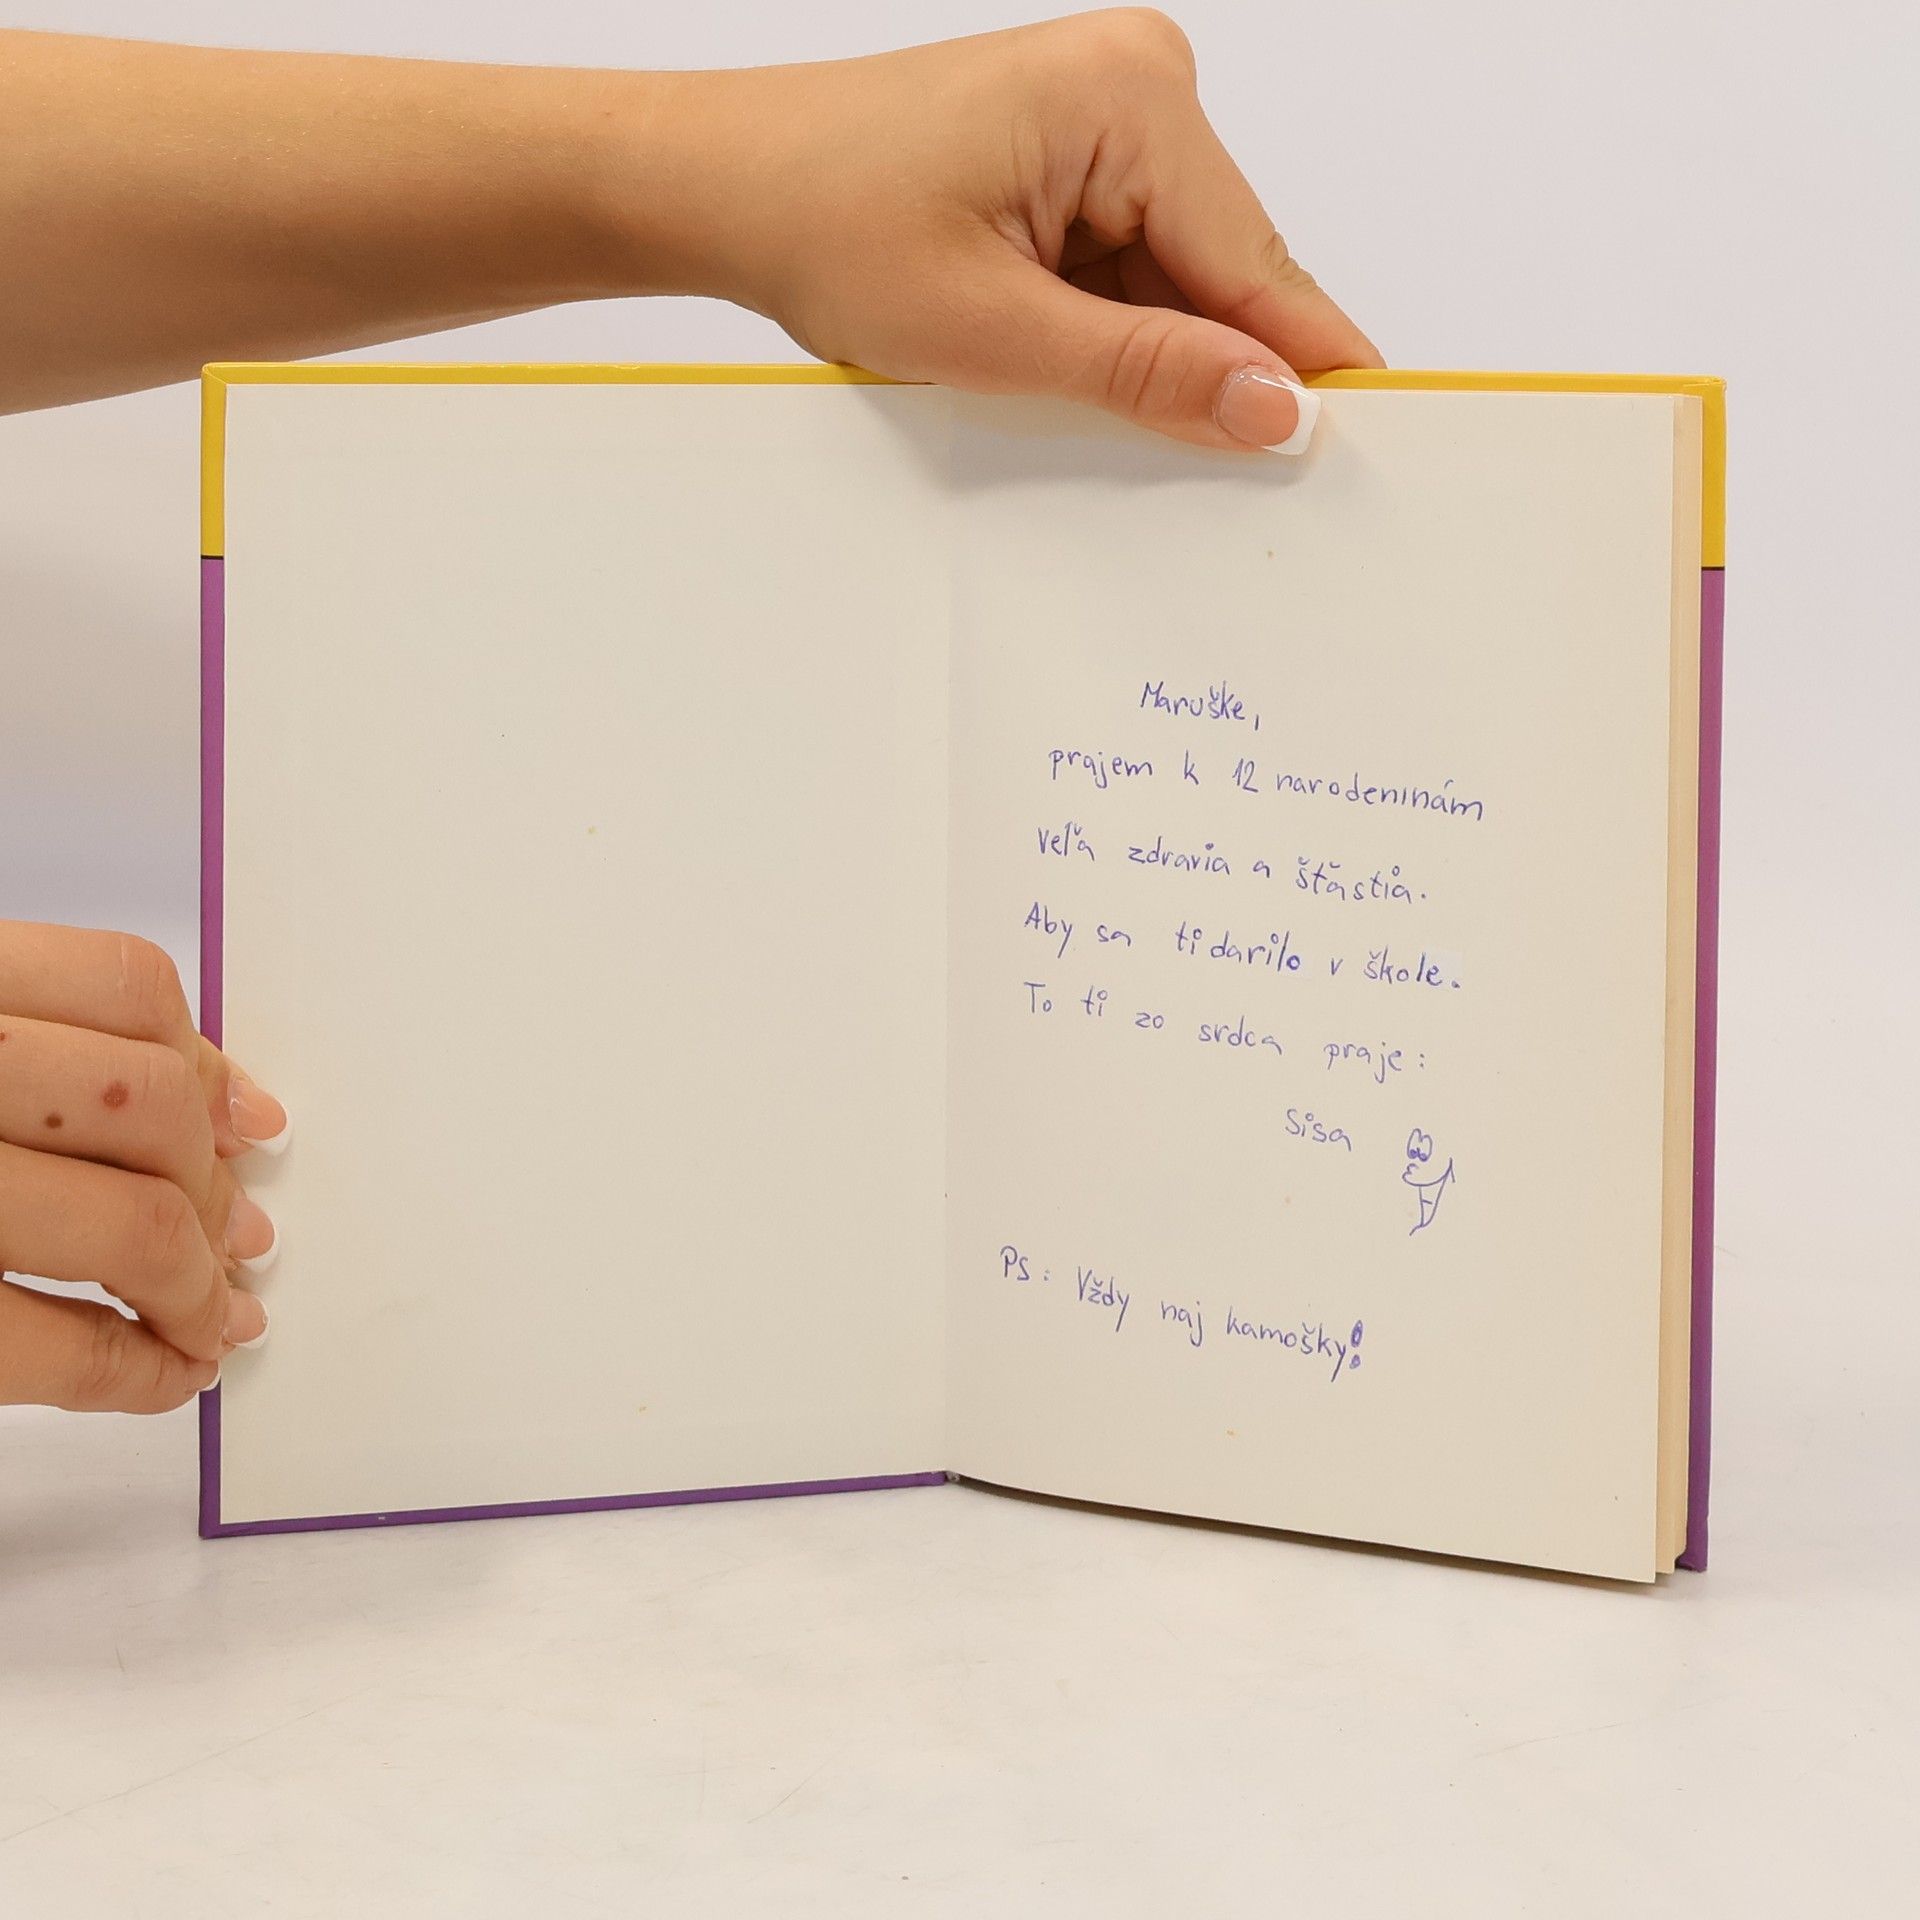 Maruške,
prajem k 12 narodeninám
veľa zdravia a šťastia.
Aby sa ti darilo v škole.
To ti zo srdca praje:
Sisa
PS: Vždy naj kamošky!